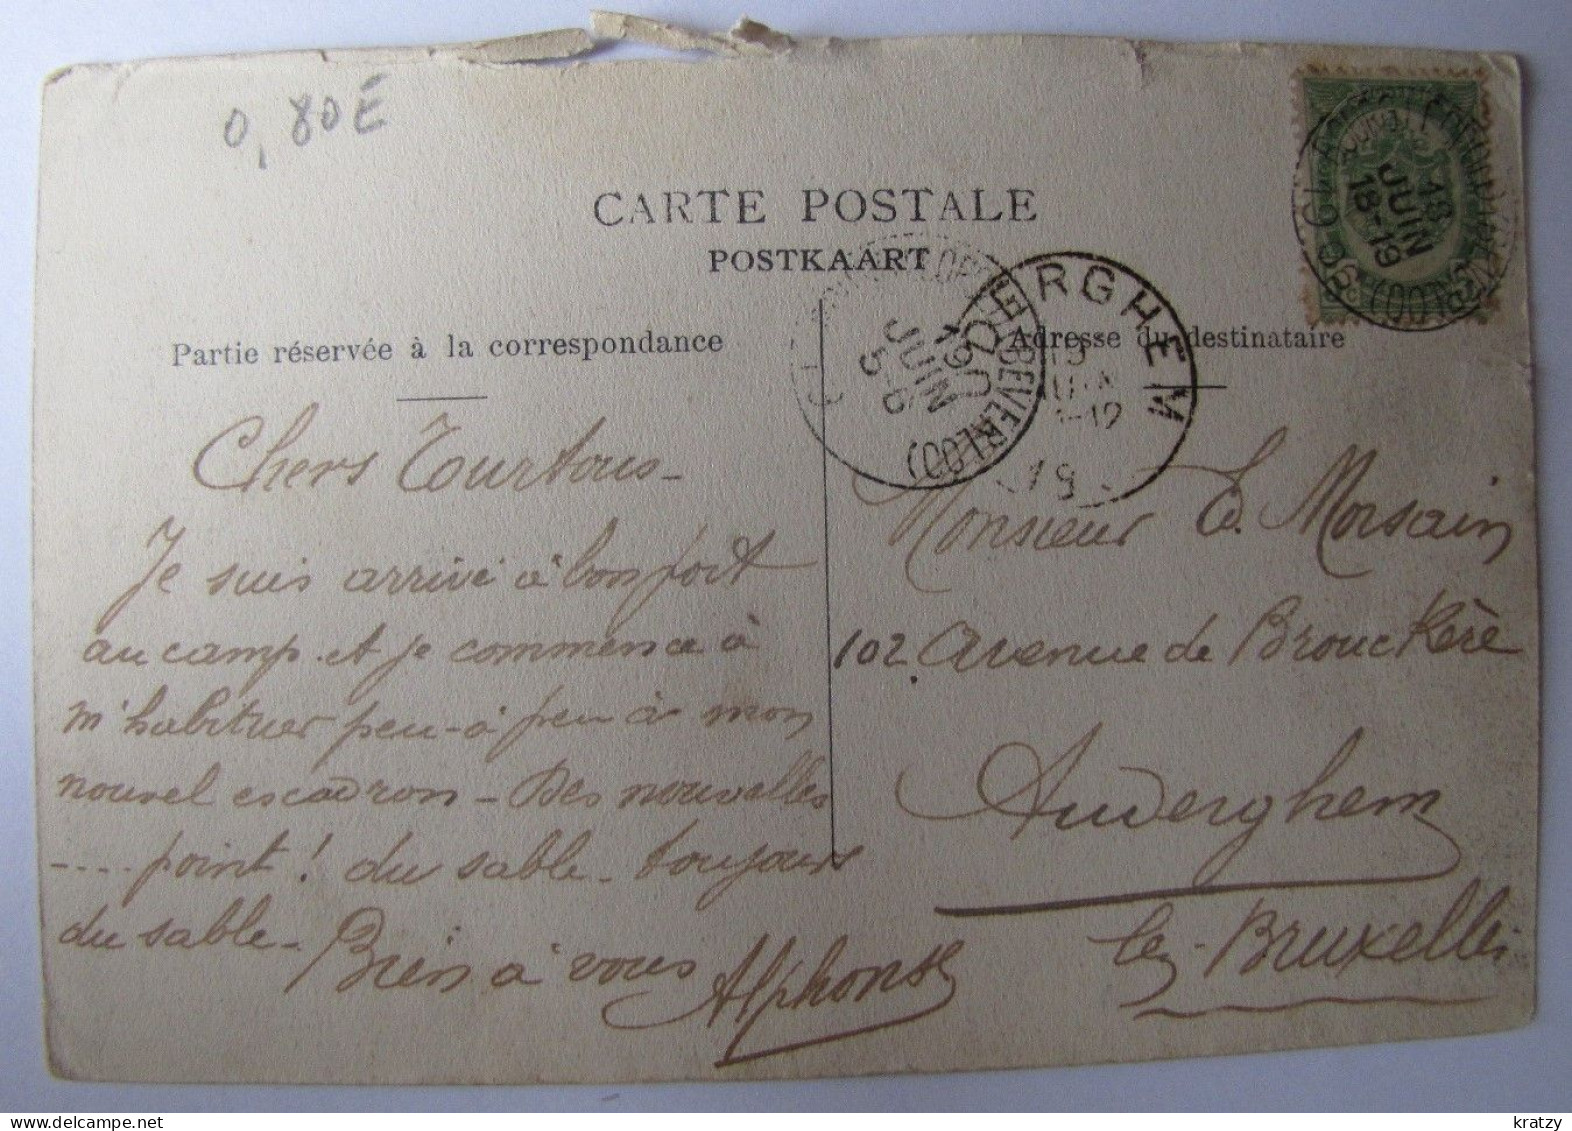 0,80E
CARTE POSTALE
POSTKAART
Partie réservée à la correspondance
Adresse du destinataire
18
JUIN
18-19
JUIN
5-6
BEVERLOO)
DERGHEM
Chers Tourtous -
Je suis arrivé à bon port
au camp. et je commence à
m'habituer peu-à peu à mon
nouvel escadron - Des nouvelles
.... point! du sable - toujours
du sable - Bien à vous
Alphonse
Monsieur Ed. Morsain
102 Avenue de Brouckère
Auderghem
lez-Bruxelles
www.delcampe.net
kratzy